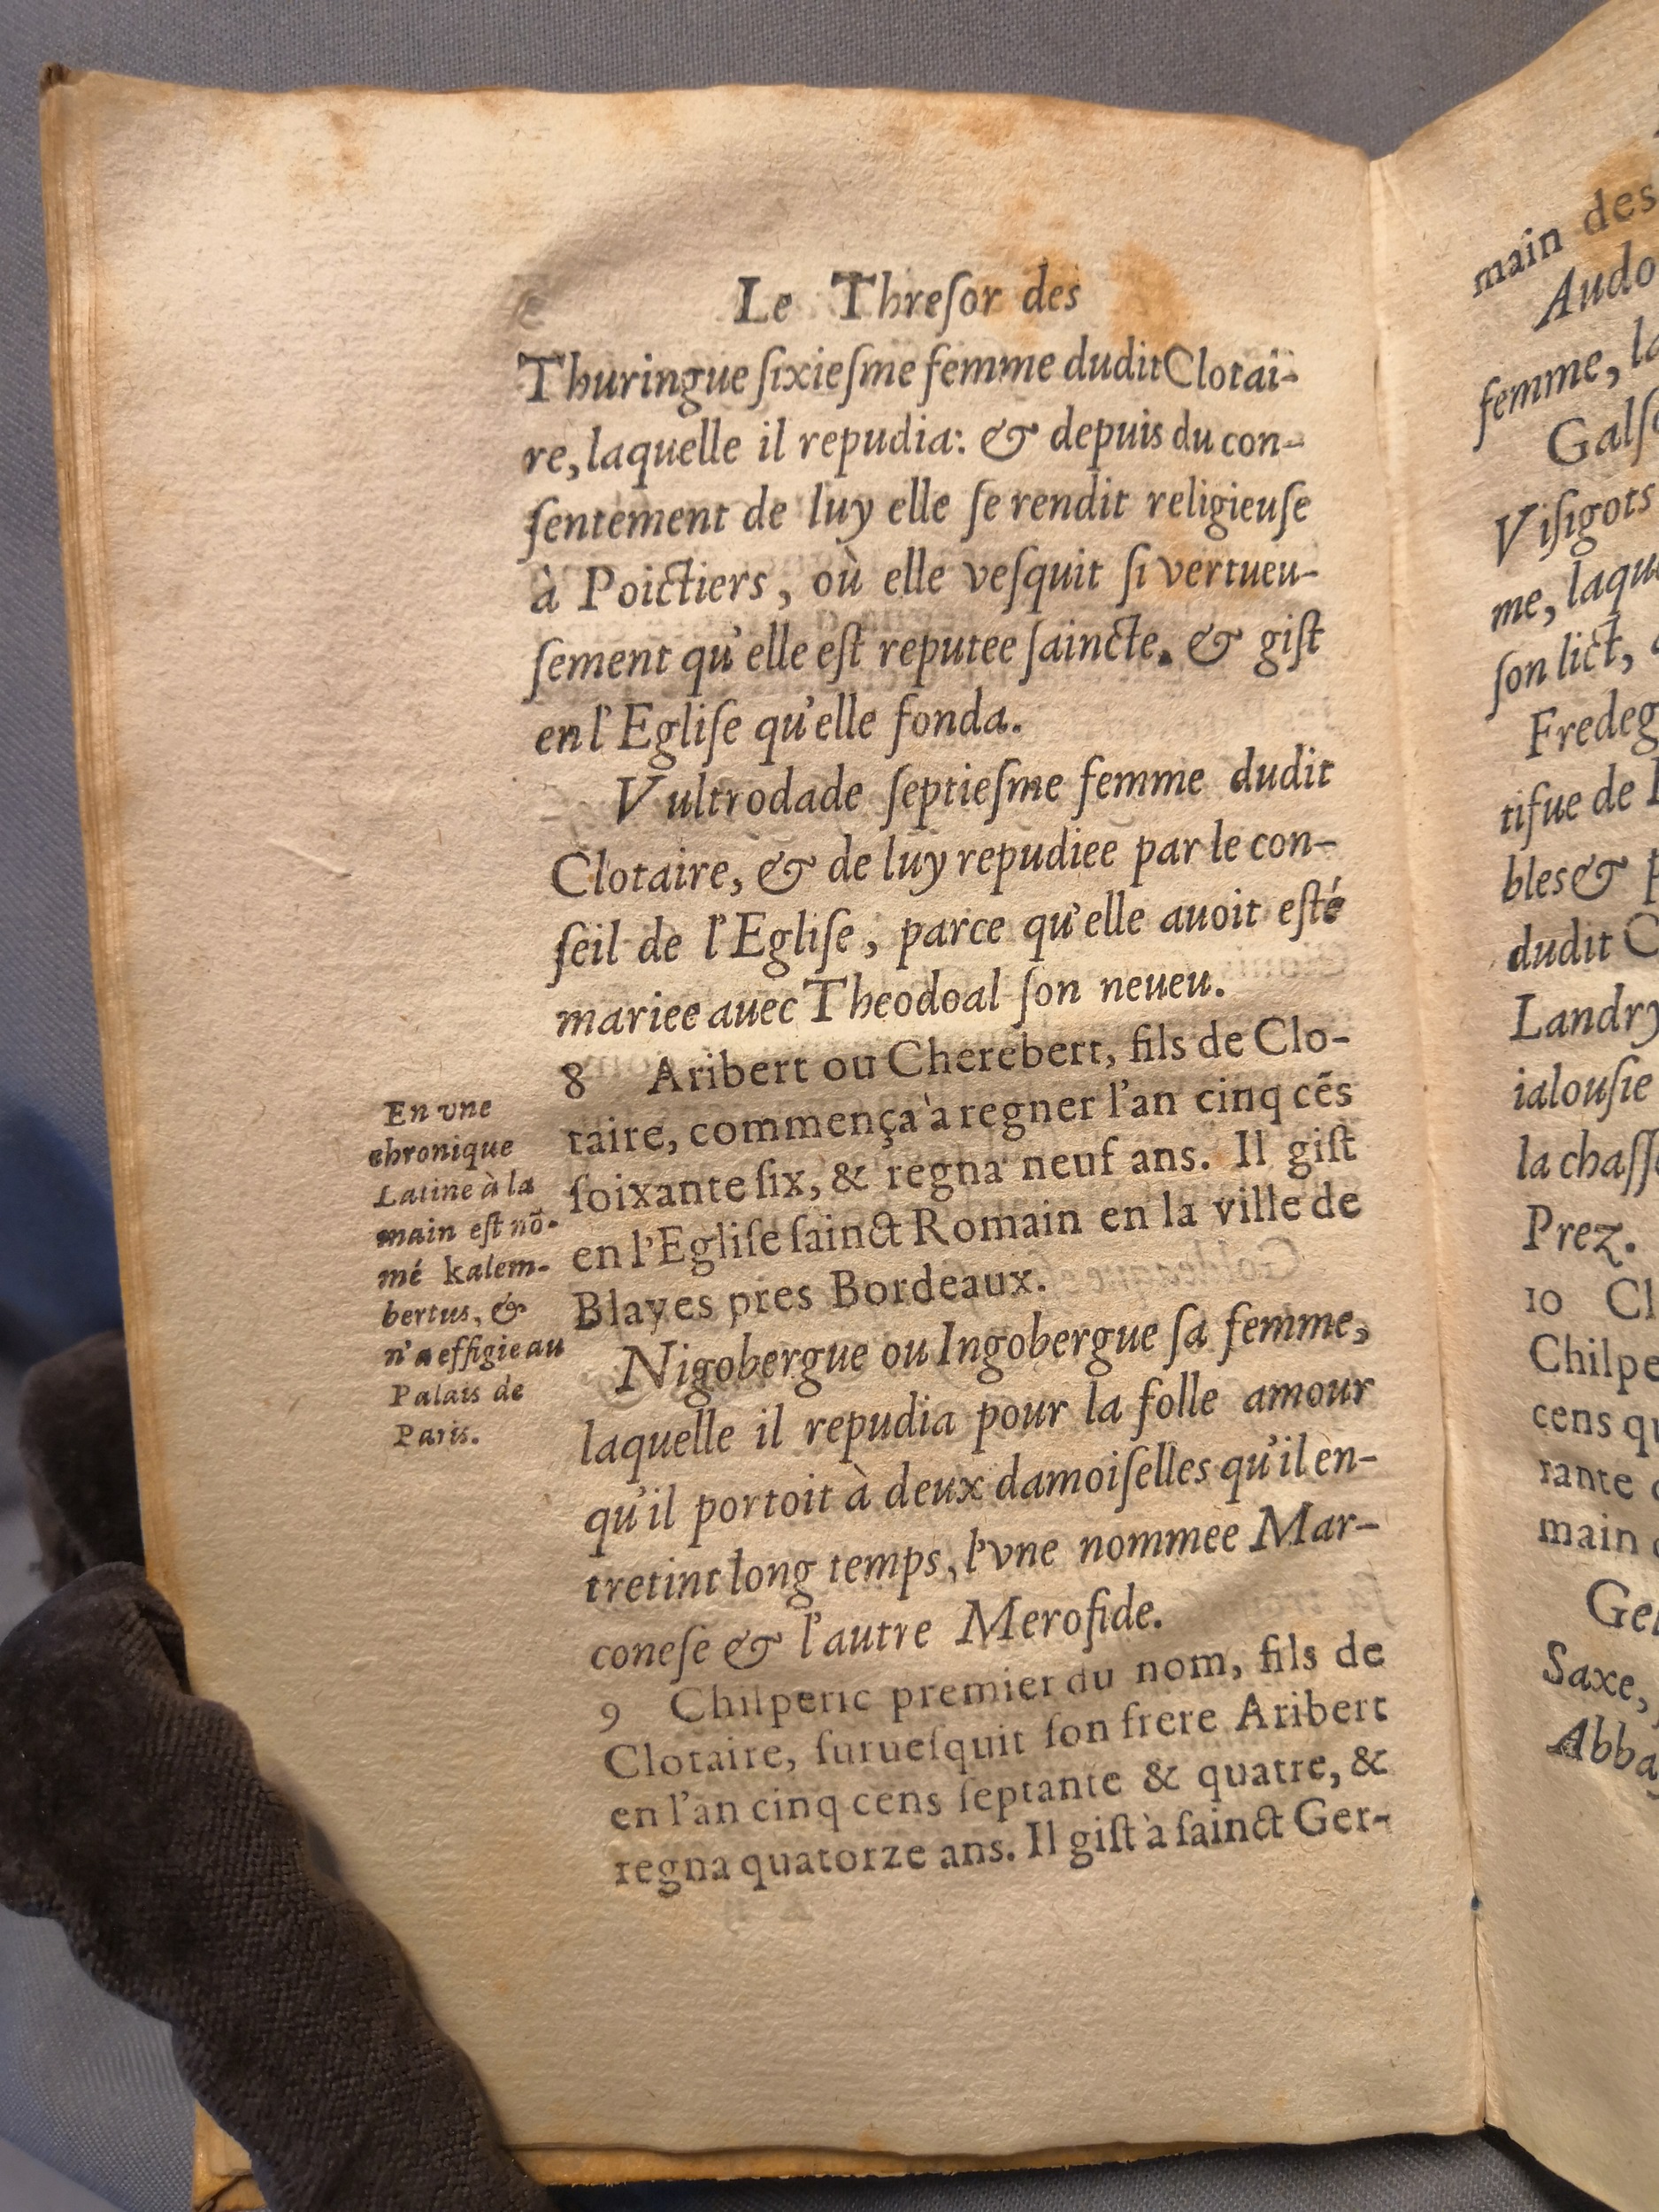 Le Threſor des
Thuringue ſixieſme femme dudit Clotai-
re, laquelle il repudia: & depuis du con-
ſentement de luy elle ſe rendit religieuſe
à Poictiers, où elle veſquit ſi vertueu-
ſement qu'elle eſt reputee ſaincte. & giſt
en l'Egliſe qu'elle fonda.
Vultrodade ſeptieſme femme dudit
Clotaire, & de luy repudiee par le con-
ſeil de l'Egliſe, parce qu'elle auoit eſté
mariee auec Theodoal ſon neueu.
8 Aribert ou Cherebert, fils de Clo-
taire, commença à regner l'an cinq cẽs
ſoixante ſix, & regna neuf ans. Il giſt
en l'Egliſe ſainct Romain en la ville de
Blayes pres Bordeaux.
En vne
chronique
Latine à la
main eſt nõ-
mé kalem-
bertus, &
n'a effigie au
Palais de
Paris.
Nigobergue ou Ingobergue ſa femme,
laquelle il repudia pour la folle amour
qu'il portoit à deux damoiſelles qu'il en-
tretint long temps, l'vne nommee Mar-
coneſe & l'autre Merofide.
9 Chilperic premier du nom, fils de
Clotaire, ſurueſquit ſon frere Aribert
en l'an cinq cens ſeptante & quatre, &
regna quatorze ans. Il giſt à ſainct Ger-
main des
Audo
femme, la
Galſ
Viſigots
me, laqu
ſon lict,
Fredeg
tifue de
bles &
dudit C
Landry
ialouſie
la chaſſ
Prez.
10 Cl
Chilpe
cens qu
rante
main
Ger
Saxe,
Abba